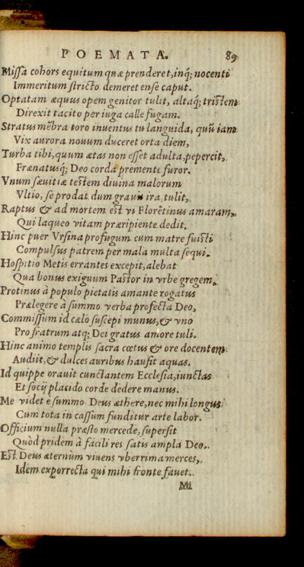 POEMATA. 89
Missa cohors equitum quæ prenderet, inq; nocenti
Immeritum stricto demeret ense caput.
Optatam æquus opem genitor tulit, altaq; tristem
Direxit tacito per iuga calle fugam.
Stratus mẽbra toro inuentus tu languida, quũ iam
Vix aurora nouum duceret orta diem,
Turba tibi, quum ætas non esset adulta, pepercit,
Frænatusq; Deo corda premente furor.
Vnum sæuitiæ testem diuina malorum
Vltio, se prodat dum grauis ira, tulit,
Raptus & ad mortem est vi Florẽtinus amaram,
Qui laqueo vitam præripiente dedit.
Hinc puer Vrsina profugum cum matre fuisti
Compulsus patrem per mala multa sequi.
Hospitio Metis errantes excepit, alebat
Qua bonus exiguum Pastor in vrbe gregem,
Protinus à populo pietatis amante rogatus
Prælegere à summo verba profecta Deo,
Commissum id cælo suscepi munus, & vno
Pro fratrum atq; Dei gratus amore tuli.
Hinc animo templis sacra cœtus & ore docentem
Audiit, & dulces auribus hausit aquas.
Id quippe orauit cunctantem Ecclesia, iunctas
Et socij placido corde dedere manus.
Me videt e summo Deus æthere, nec mihi longus
Cum tota in cassum funditur arte labor.
Officium nulla præsto mercede, supersit
Quòd pridem à facili res satis ampla Deo.
Est Deus æternùm viuens vberrima merces,
Idem exporrecta qui mihi fronte fauet.
Mi